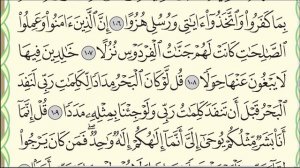 بِمَا كَفَرُوا۟ وَٱتَّخَذُوٓا۟ ءَايَٰتِى وَرُسُلِى هُزُوًا ١٠٦ إِنَّ ٱلَّذِينَ ءَامَنُوا۟ وَعَمِلُوا۟
ٱلصَّٰلِحَٰتِ كَانَتْ لَهُمْ جَنَّٰتُ ٱلْفِرْدَوْسِ نُزُلًا ١٠٧ خَٰلِدِينَ فِيهَا
لَا يَبْغُونَ عَنْهَا حِوَلًا ١٠٨ قُل لَّوْ كَانَ ٱلْبَحْرُ مِدَادًا لِّكَلِمَٰتِ رَبِّى لَنَفِدَ
ٱلْبَحْرُ قَبْلَ أَن تَنفَدَ كَلِمَٰتُ رَبِّى وَلَوْ جِئْنَا بِمِثْلِهِۦ مَدَدًا ١٠٩ قُلْ إِنَّمَآ
أَنَا۠ بَشَرٌ مِّثْلُكُمْ يُوحَىٰٓ إِلَىَّ أَنَّمَآ إِلَٰهُكُمْ إِلَٰهٌ وَٰحِدٌ فَمَن كَانَ يَرْجُوا۟